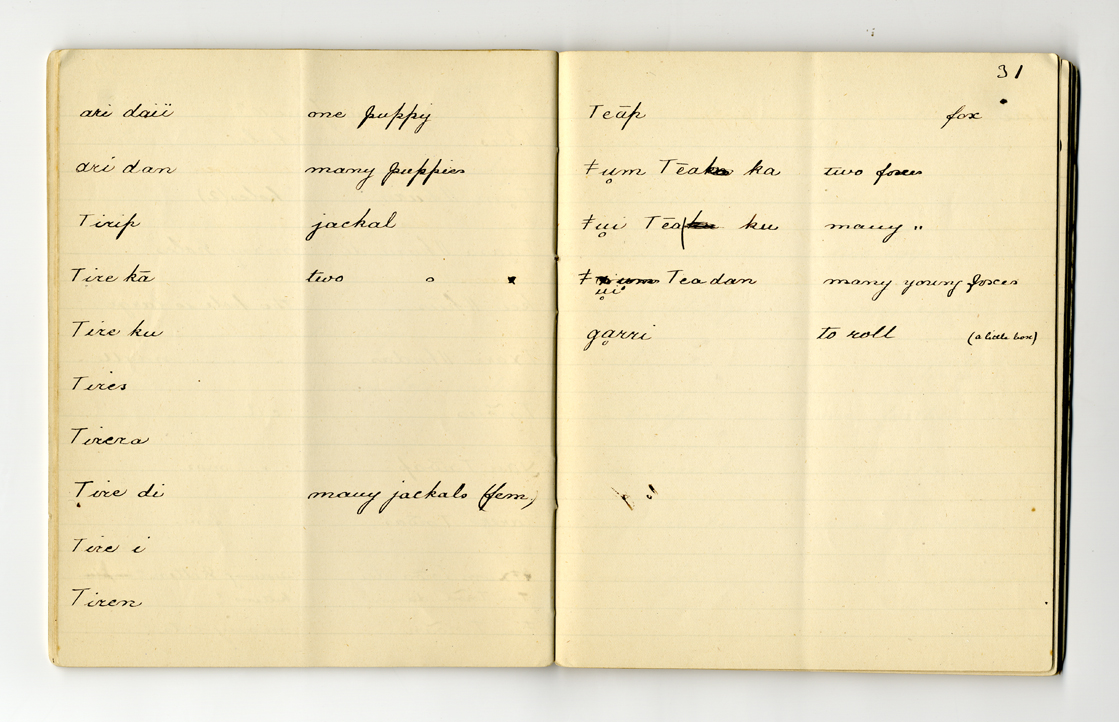 ari daïï one puppy
ari dan many puppies
Tirip jackal
Tire kā two "
Tire ku
Tires
Tirera
Tire di many jackals (fem)
Tire i
Tiren
31
Teāp fox
ǂu̥m Tēa ka two foxes
ǂu̥i Tēa ku many "
ǂu̥i Teadan many young foxes
gḁrri to roll (a little box)